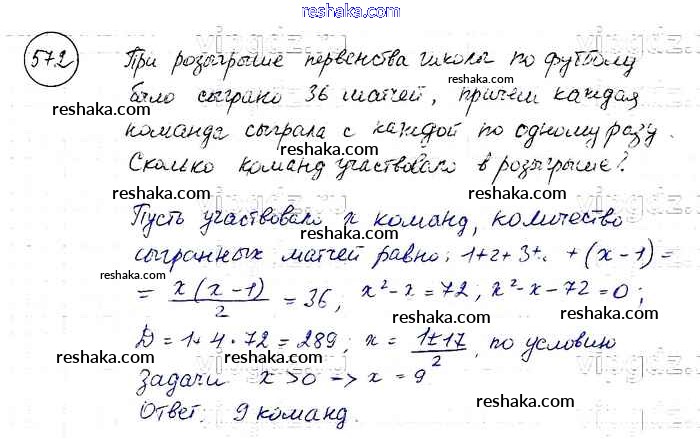 reshaka.com
572 При розыгрыше первенства школы по футболу
было сыграно 36 матчей, причем каждая
команда сыграла с каждой по одному разу.
Сколько команд участвовало в розыгрыше?
Пусть участвовало x команд, количество
сыгранных матчей равно: 1+2+3+.. +(x-1)=
= x(x-1)/2 = 36, x²-x=72; x²-x-72=0;
D=1+4·72=289; x = 1±17/2, по условию
задачи x>0 -> x=9
Ответ. 9 команд.